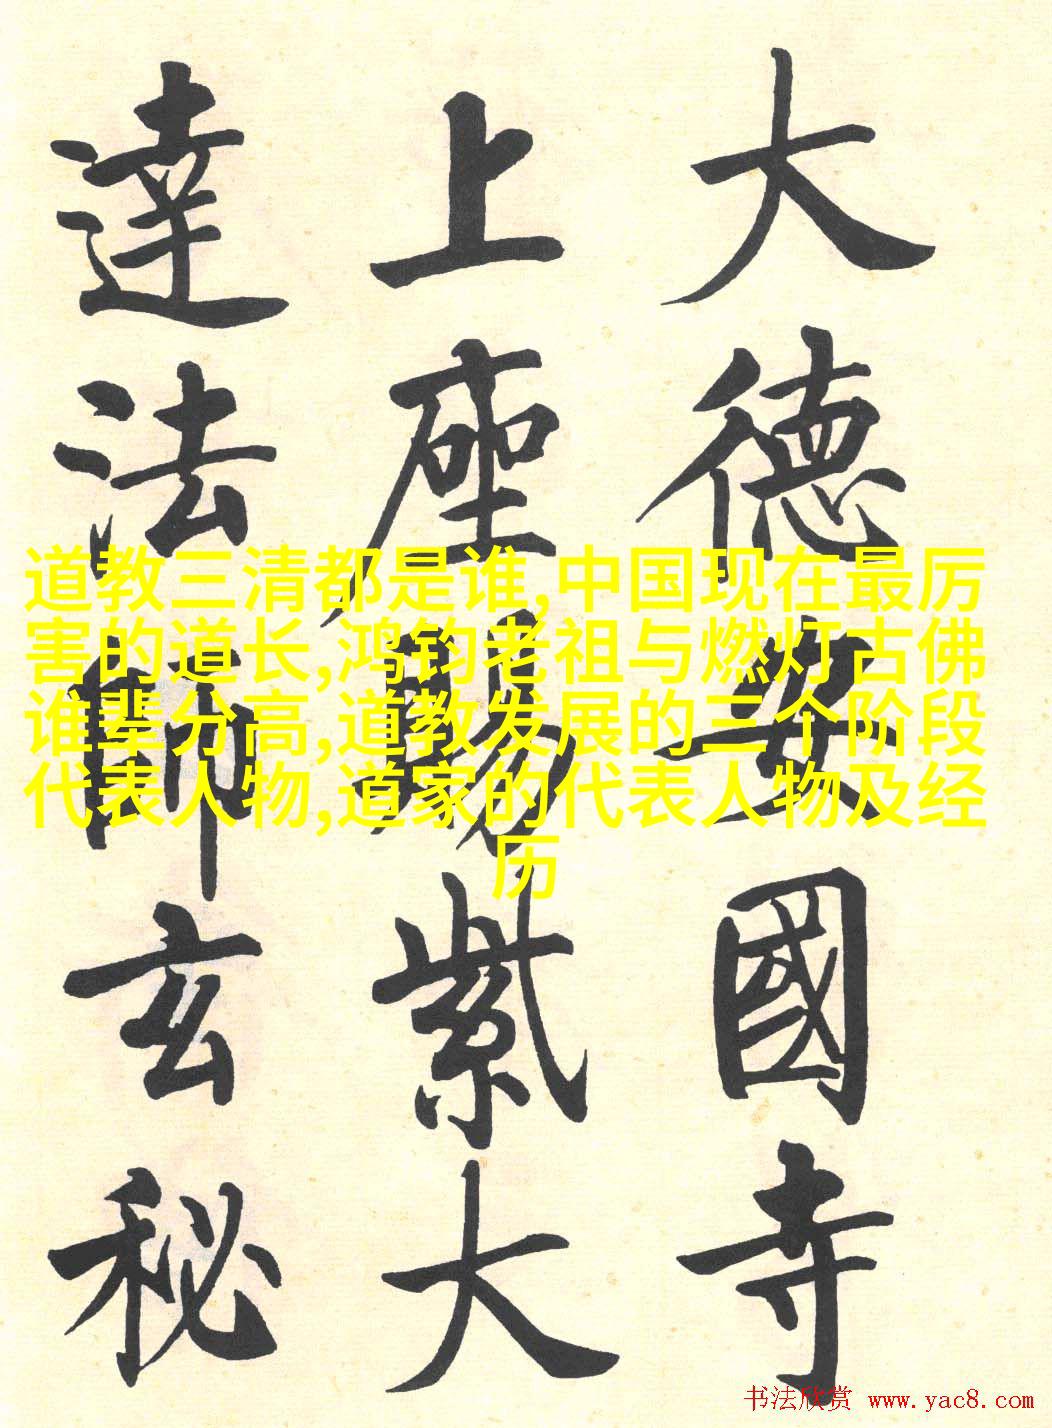 大德安國寺
上座賜紫大
達法師玄秘
道教三清都是谁,中国现在最厉
害的道长,鸿钧老祖与燃灯古佛
谁辈分高,道教发展的三个阶段
代表人物,道家的代表人物及经
历
书法欣赏 www.yac8.com